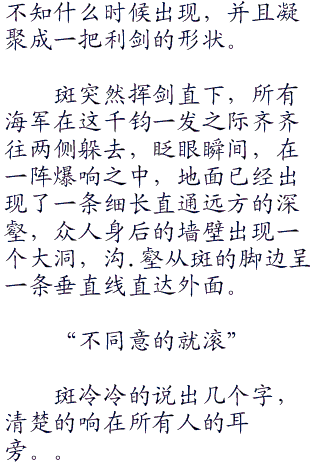 不知什么时候出现，并且凝
聚成一把利剑的形状。
斑突然挥剑直下，所有
海军在这千钧一发之际齐齐
往两侧躲去，眨眼瞬间，在
一阵爆响之中，地面已经出
现了一条细长直通远方的深
壑，众人身后的墙壁出现一
个大洞，沟.壑从斑的脚边呈
一条垂直线直达外面。
“不同意的就滚”
斑冷冷的说出几个字，
清楚的响在所有人的耳
旁。。